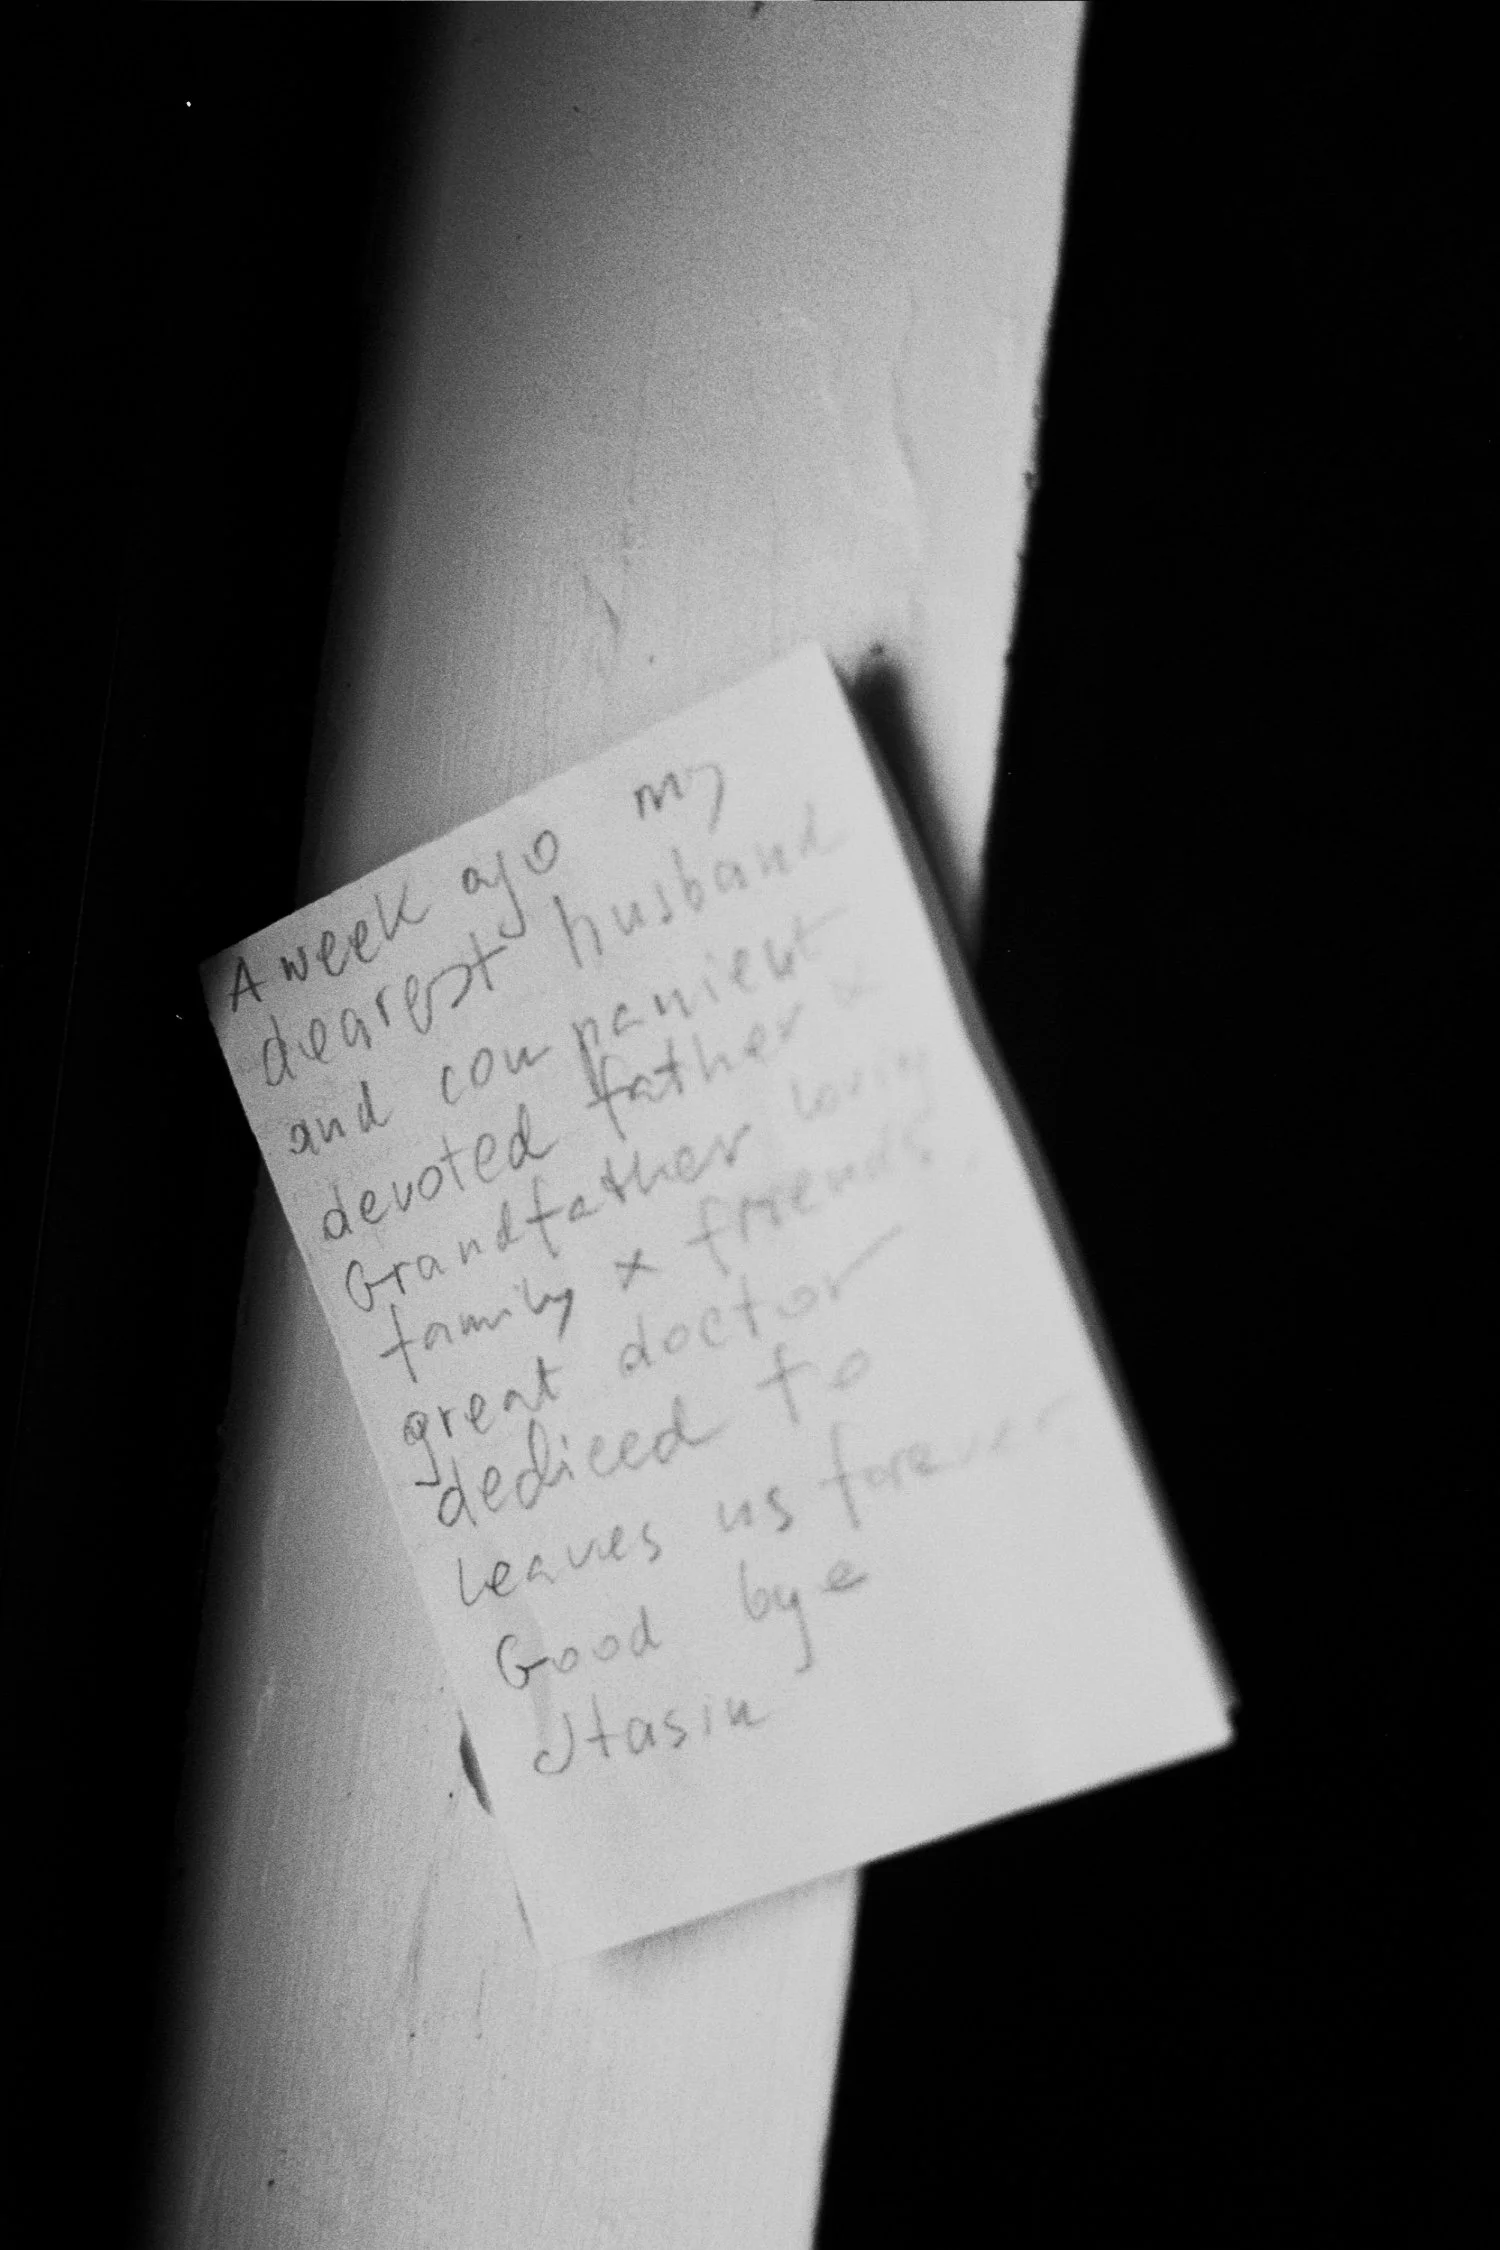 A week ago my
dearest husband
and companient
devoted father &
Grandfather, loving
family x friends,
great doctor
dediced to
leaves us forever
Good bye